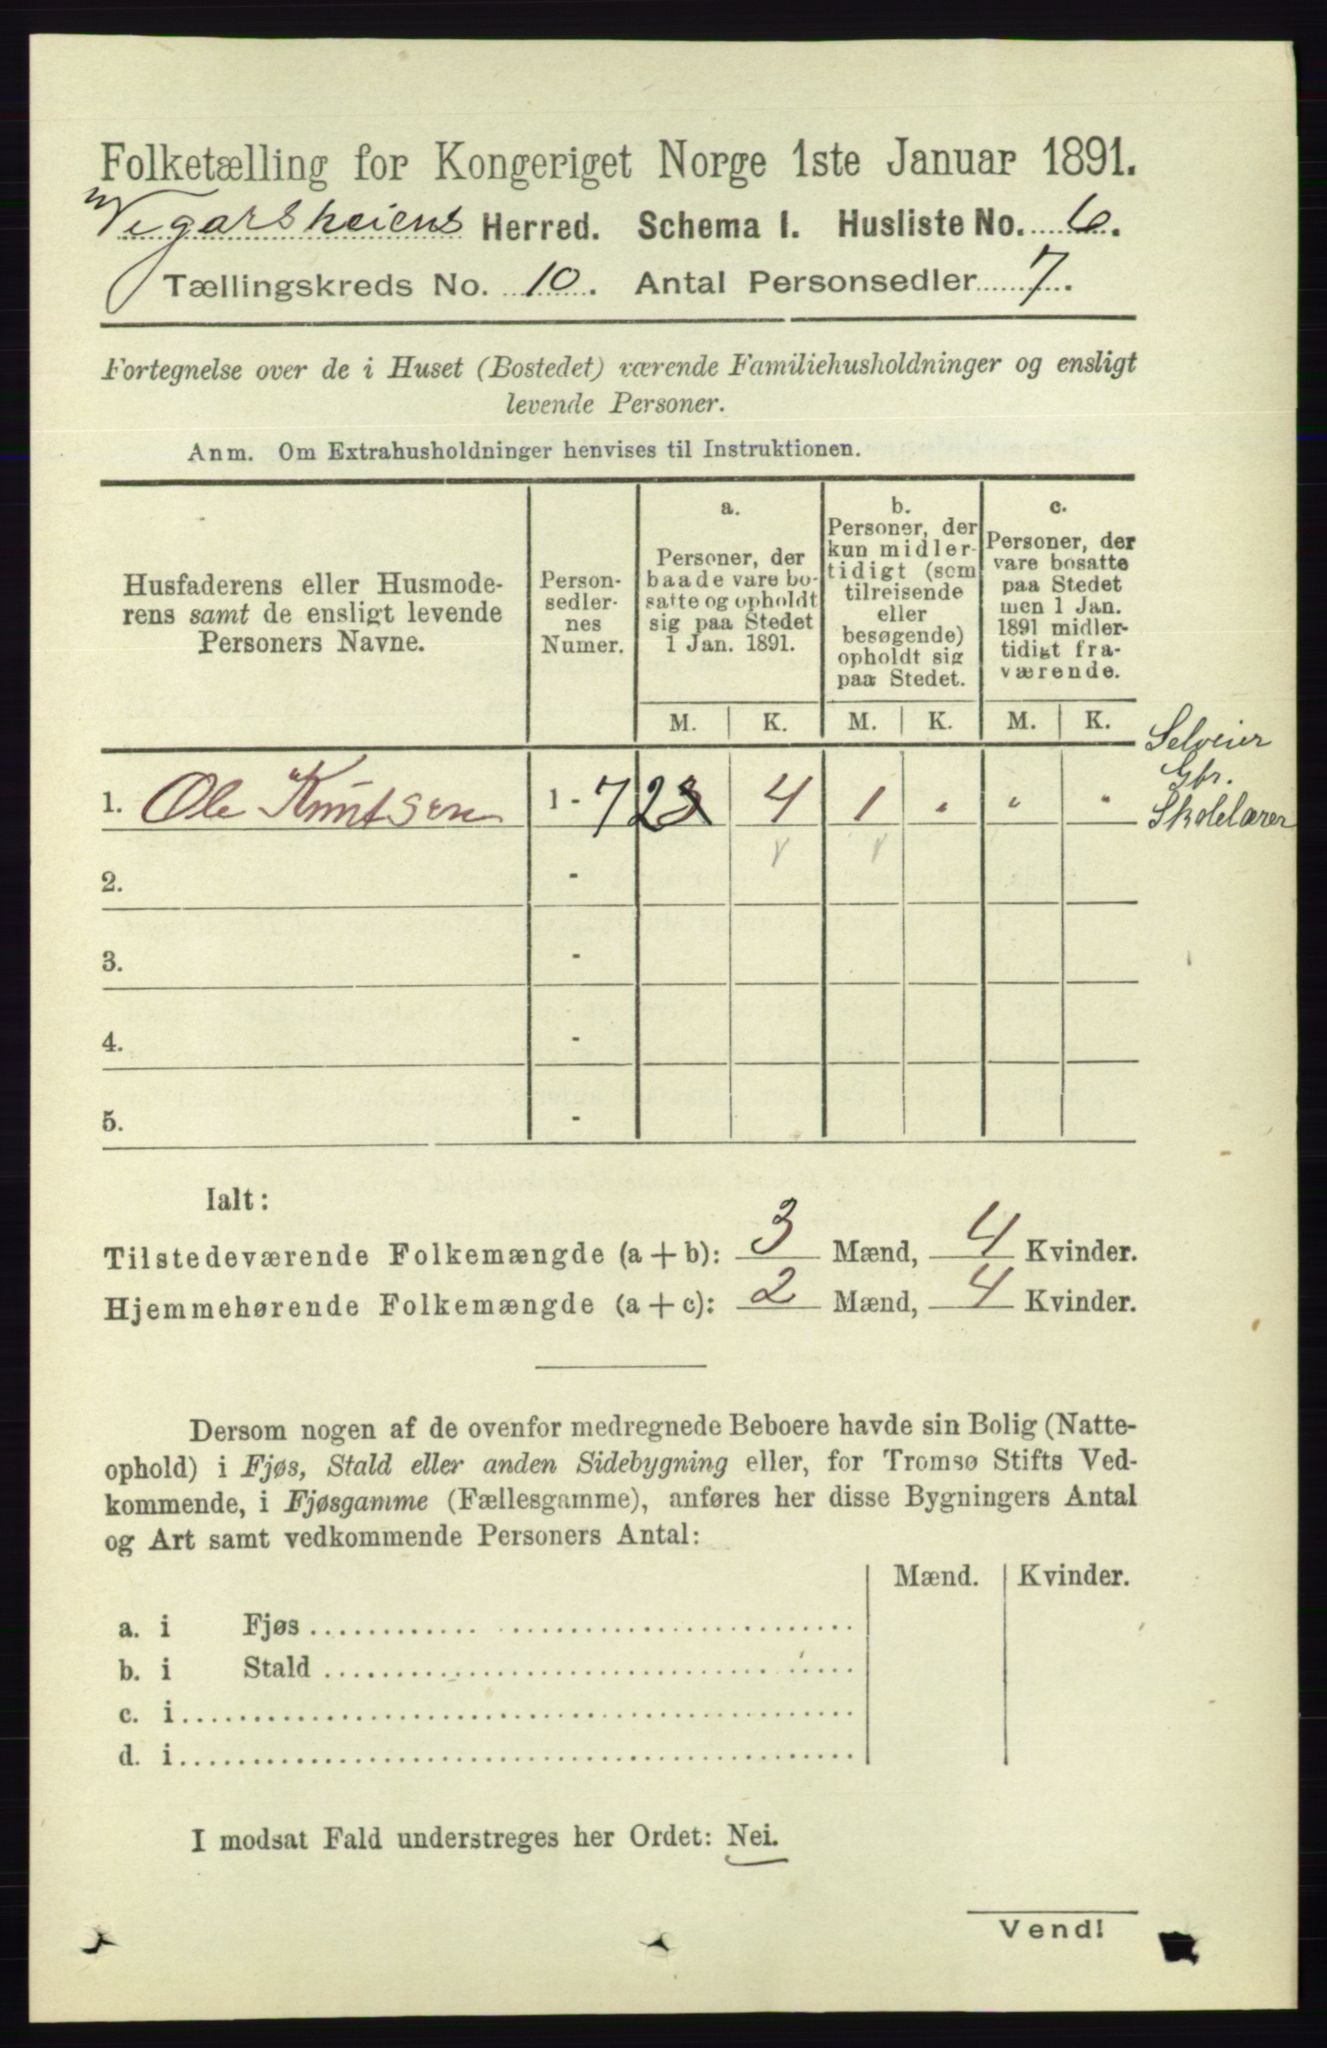 Folketælling for Kongeriget Norge 1ste Januar 1891.
Vegarsheiens Herred. Schema I. Husliste No. 6.
Tællingskreds No. 10. Antal Personsedler 7.
Fortegnelse over de i Huset (Bostedet) værende Familiehusholdninger og ensligt
levende Personer.
Anm. Om Extrahusholdninger henvises til Instruktionen.
Husfaderens eller Husmode-
rens samt de ensligt levende
Personers Navne.
Person-
sedler-
nes
Numer.
a.
Personer, der
baade vare bo-
satte og opholdt
sig paa Stedet
1 Jan. 1891.
b.
Personer, der
kun midler-
tidigt (som
tilreisende
eller
besøgende)
opholdt sig
paa Stedet.
c.
Personer, der
vare bosatte
paa Stedet
men 1 Jan.
1891 midler-
tidigt fra-
værende.
M. K. M. K. M. K.
Selveier
Gbr.
Skolelærer
1. Ole Knutsen 1 - 7 2 3 4 1 " " "
2. -
3. -
4. -
5. -
Ialt:
Tilstedeværende Folkemængde (a + b): 3 Mænd, 4 Kvinder.
Hjemmehørende Folkemængde (a + c): 2 Mænd, 4 Kvinder.
Dersom nogen af de ovenfor medregnede Beboere havde sin Bolig (Natte-
ophold) i Fjøs, Stald eller anden Sidebygning eller, for Tromsø Stifts Ved-
kommende, i Fjøsgamme (Fællesgamme), anføres her disse Bygningers Antal
og Art samt vedkommende Personers Antal:
Mænd. Kvinder.
a. i Fjøs
b. i Stald
c. i
d. i
I modsat Fald understreges her Ordet: Nei.
Vend!